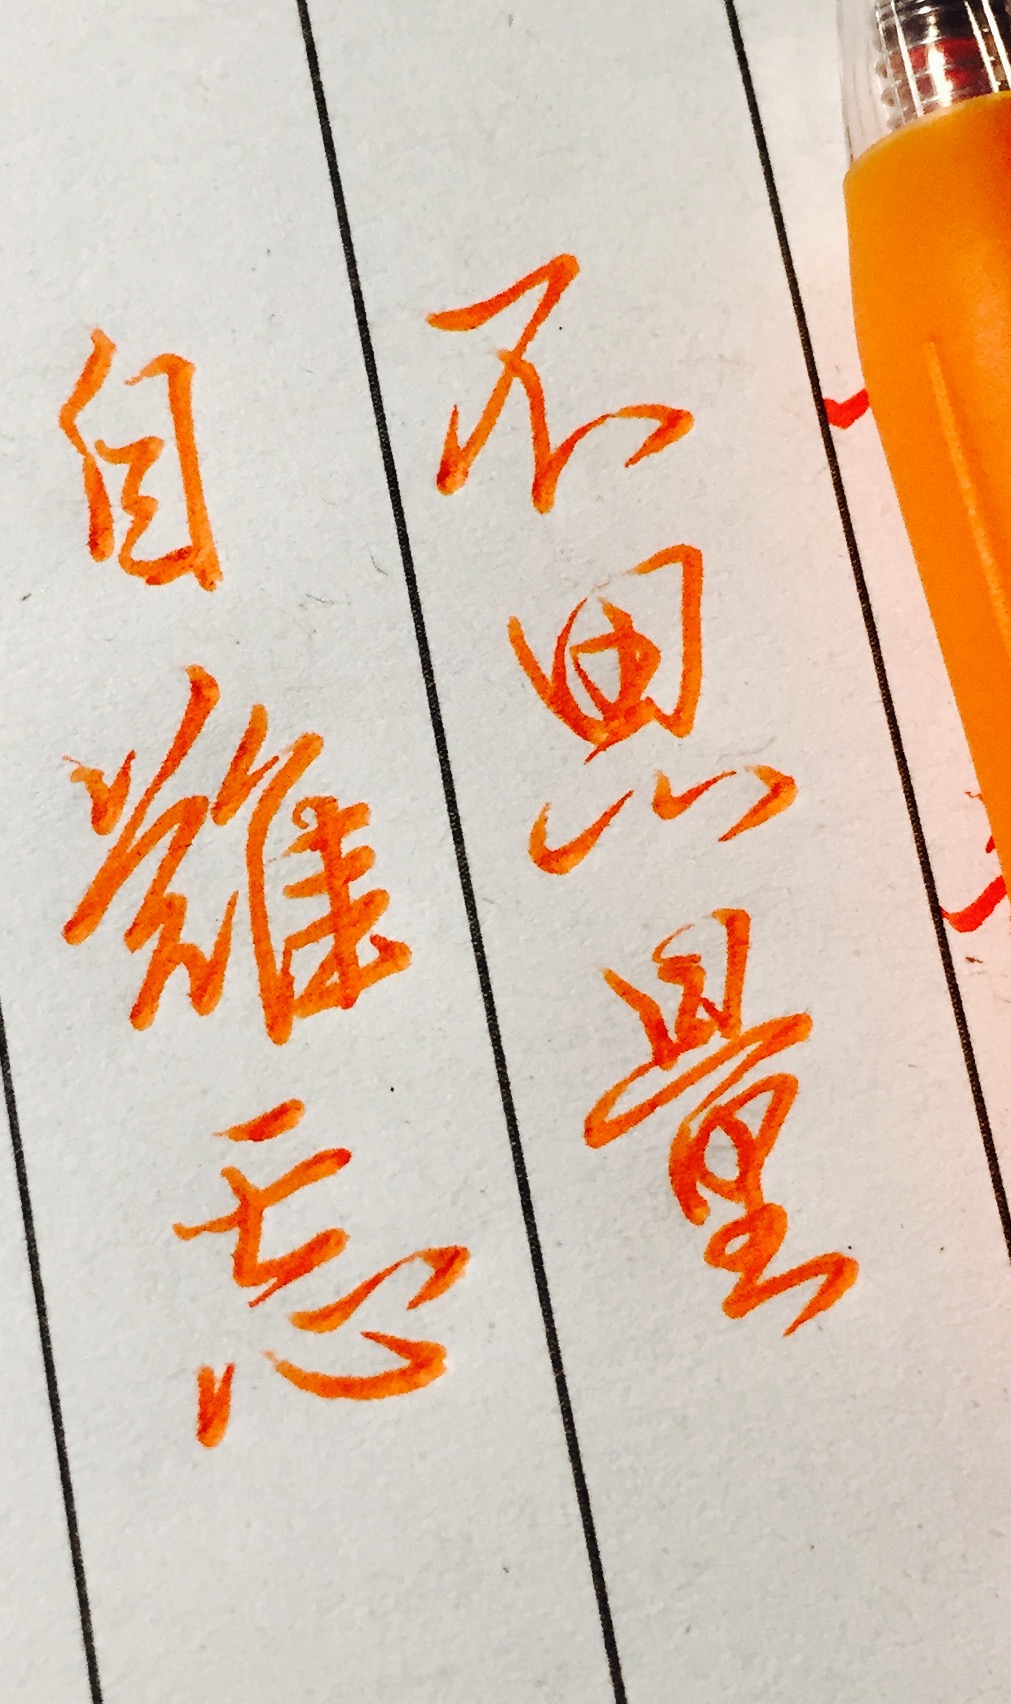 不思量
自難忘